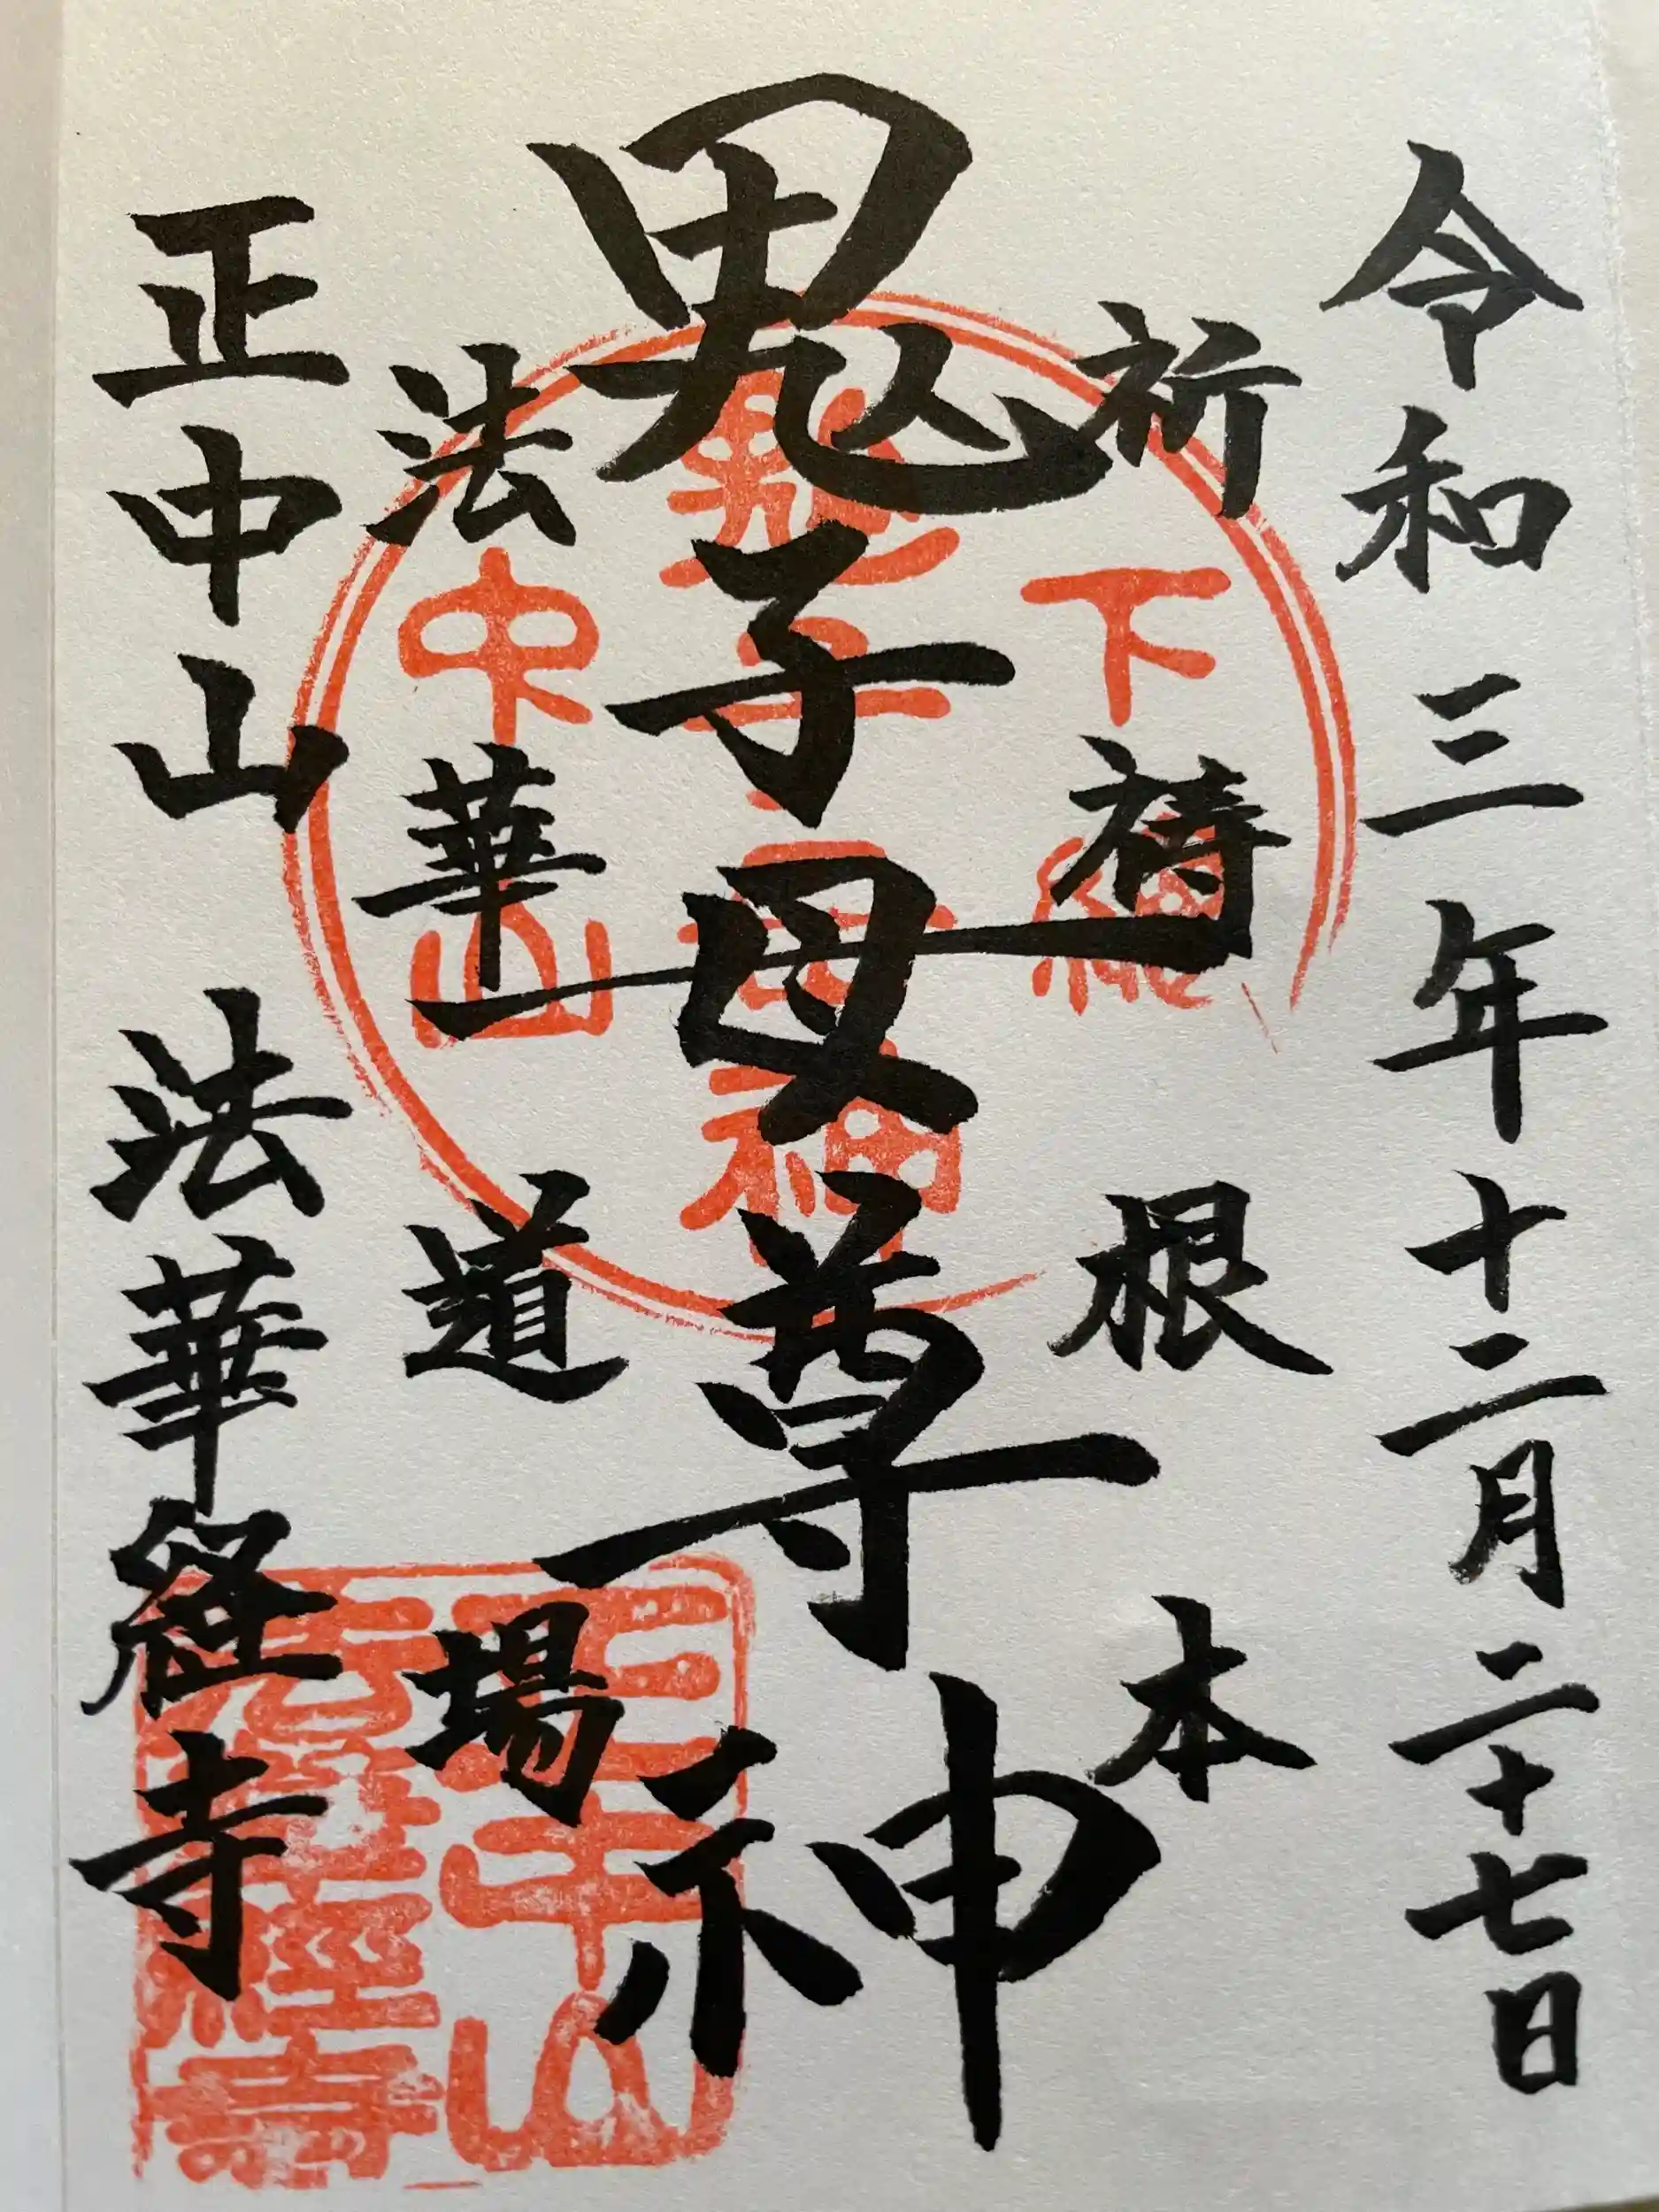 令和三年十二月二十七日
祈祷根本
鬼子母尊神
法華道場
正中山 法華経寺
下総
鬼子母神
中山
正中山
法華経寺